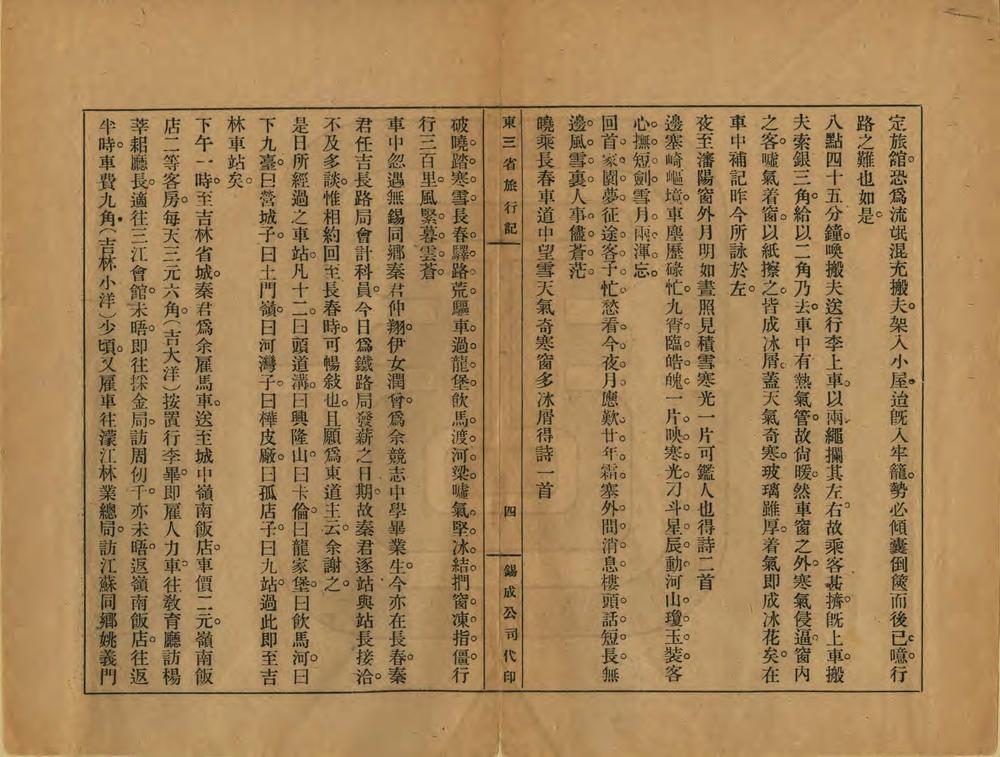 定旅館。恐爲流氓混充搬夫。架入小屋。迨旣入牢籠。勢必傾囊倒篋而後已。噫。行
路之難也如是。
八點四十五分鐘。喚搬夫送行李上車。以兩繩攔其左右。故乘客甚擠。旣上車。搬
夫索銀三角。給以二角乃去。車中有熱氣管。故尙暖。然車窗之外。寒氣侵逼。窗內
之客。噓氣着窗。以紙擦之。皆成冰屑。蓋天氣奇寒。玻璃雖厚。着氣卽成冰花矣。在
車中補記昨今所詠於左。
夜至瀋陽窗外月明如晝照見積雪寒光一片可鑑人也得詩二首
邊塞崎嶇境。車塵歷碌忙。九霄臨皓魄。一片映寒光。刁斗星辰動。河山瓊玉裝。客
心撫短劍。雪月兩渾忘。
回首家園夢。征途客子忙。愁看今夜月。應歎廿年霜。塞外問消息。樓頭話短長。無
邊風雪裏。人事儘蒼茫。
曉乘長春車道中望雪天氣奇寒窗多冰屑得詩一首
東三省旅行記　四　錫成公司代印
破曉踏寒雪。長春驛路荒。驅車過龍堡。飮馬渡河梁。噓氣堅冰結。捫窗凍指僵。行
行三百里。風緊暮雲蒼。
車中忽遇無錫同鄉秦君仲翔。伊女潤曾。爲余競志中學畢業生。今亦在長春。秦
君任吉長路局會計科員。今日爲鐵路局發薪之日期。故秦君逐站與站長接洽。
不及多談。惟相約回至長春時。可暢敍也。且願爲東道主云。余謝之。
是日所經過之車站。凡十二。曰頭道溝。曰興隆山。曰卡倫。曰龍家堡。曰飮馬河。曰
下九臺。曰營城子。曰土門嶺。曰河灣子。曰樺皮廠。曰孤店子。曰九站。過此卽至吉
林車站矣。
下午一時。至吉林省城。秦君爲余雇馬車。送至城中嶺南飯店。車價二元。嶺南飯
店二等客房。每天三元六角。（吉大洋）按置行李畢。卽雇人力車。往敎育廳訪楊
莘耜廳長。適往三江會館。未晤。卽往採金局。訪周仞千。亦未晤。返嶺南飯店。往返
半時。車費九角。（吉林小洋）少頃。又雇車往濛江林業總局。訪江蘇同鄉姚義門